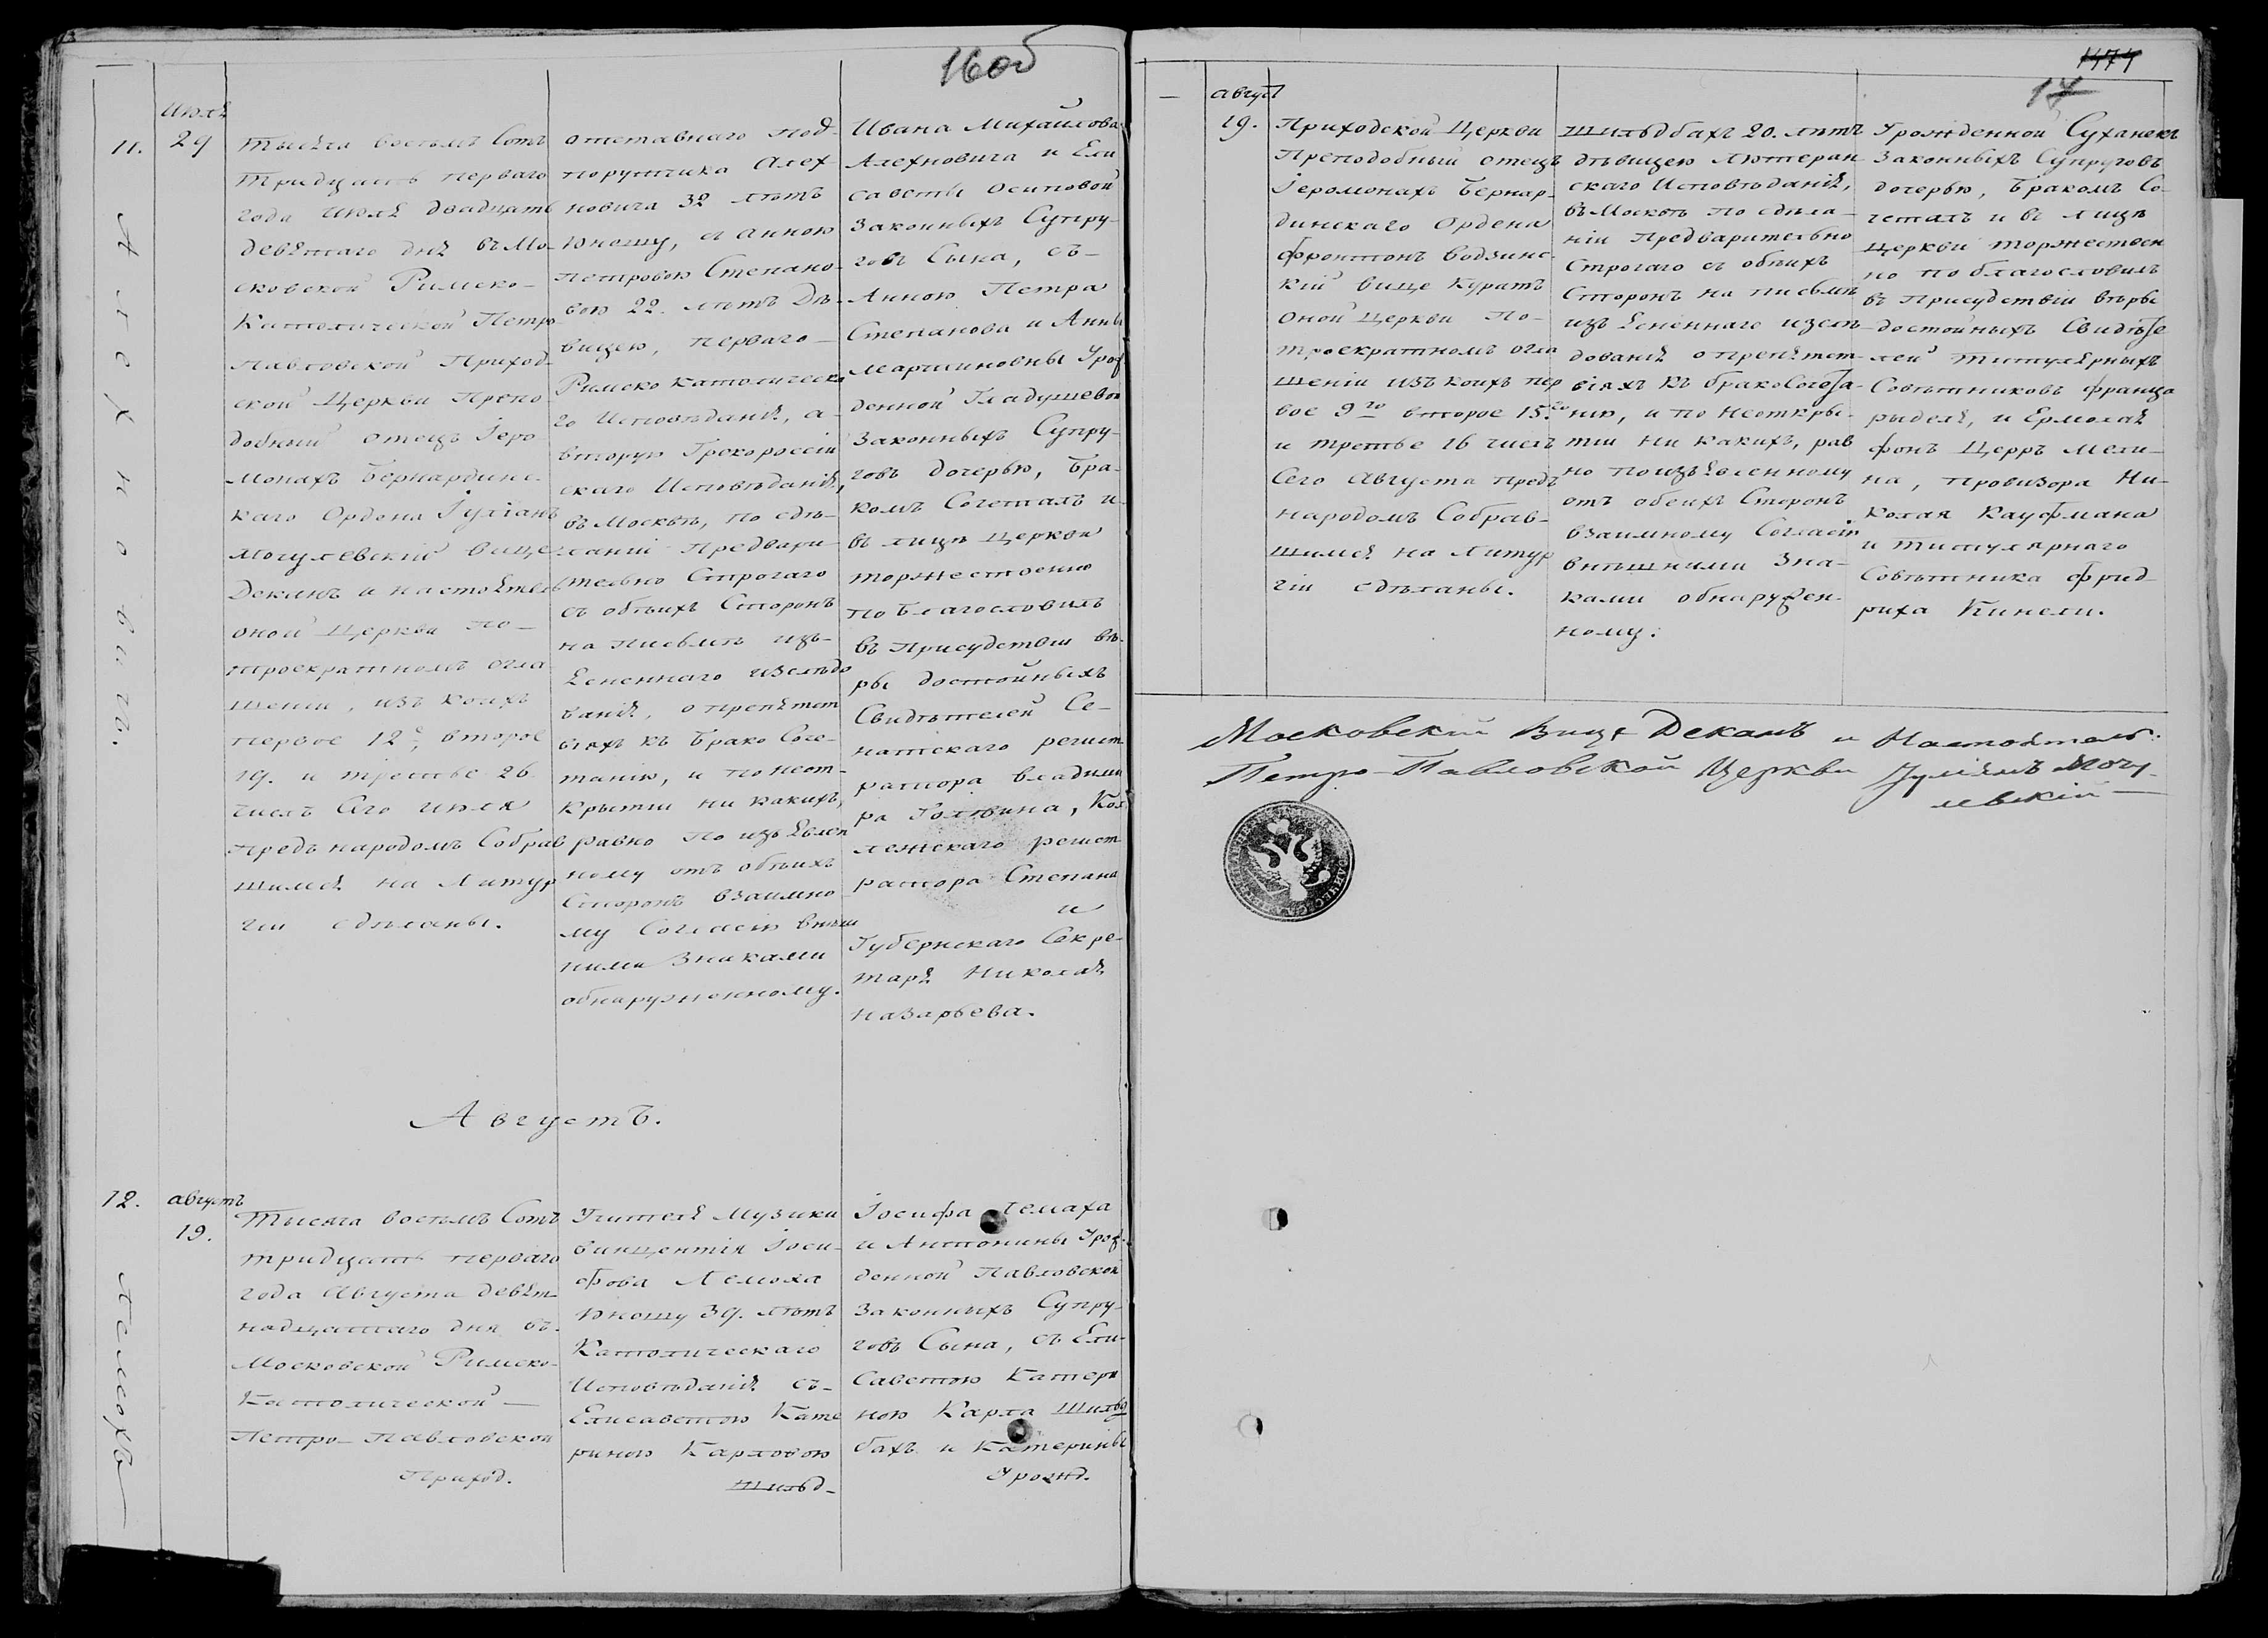 16 об
11.
Июля
29
Алехновичь.
Тысяча восемь Сотъ
Тридцать перваго
года Июля двадцать
девятаго дня въ Мо-
сковской Римско-
Католической Петро
Павловской Приход-
ской Церкви Препо
добный отецъ Iеро
Монахъ Бернардинс-
каго Ордена Iулiанъ
Могулевскiй Вице
Деканъ и настоятель
оной Церкви по-
троекратномъ огла
шенiи, изъ коихъ
первое 12е, второе
19. и третье 26
числъ Сего Июля
предъ народомъ Собрав
шимся на Литур
гiи сделаны.
отставнаго под-
порутчика Алех
новича 32 летъ
Юношу, съ Анною
Петровою Степано-
вою 22. летъ Де-
вицею, перваго
Римско Католическа
го Исповеданiя, а-
вторую Грекороссiй
скаго Исповеданiя,
въ Москве, по сде-
ланiи Предвари-
тельно Строгаго
съ обеихъ Сторонъ
на письме изъ-
ясненнаго изследо
ванiя, о препятст
вiяхъ къ Брако Соче-
танiю, и по неот-
крытiи ни какихъ,
равно по изъявлен
ному отъ обеихъ
Сторонъ взаимно
му Согласiю внеш
ними Знаками
обнаруженному.
Ивана Михайлова
Алехновича и Ели
саветы Осиповой
Законныхъ Супру-
говъ Сына, съ-
Анною Петра
Степанова и Анны
Мартиновны Урож
денной Гладушевой
Законныхъ Супру-
говъ дочерью, Бра-
комъ Сочеталъ и
въ лице Церкви
торжественно
по Благословилъ
въ Присудствiи ве-
ры достойныхъ
Свидетелей Се-
натскаго регист
ратора Владими
ра Голювина, Кол
лежскаго регист
ратора Степана
и
Губернскаго Секре-
таря Николая
Назарьева.
Августъ.
12.
августъ
19.
Лемоха
Тысяча восемь Сотъ
тридцать перваго
года Августа девят-
надцатаго дня въ-
Московской Римско-
Католической
Петро-Павловской
Приход.
Учителя Музики
Винцентiя Iоси-
фова Лемоха
Юношу 39. летъ
Католическаго
Исповеданiя съ-
Елисаветою Кате
риною Карловою
Шильд-
Iосифа Лемаха
и Антонины Урож-
денной Павловской
Законныхъ Супру-
говъ Сына, съ Ели-
Саветою Катери
ною Карла Шильд
бахъ и Катерины
Урожд.
1474
17
август
19.
Приходской Церкви
Преподобный отецъ
Iеромонахъ Бернар-
динскаго Ордена
Фронтонъ Водзинс-
кiй Вице Куратъ
оной Церкви По-
троекратномъ огла
шенiи изъ коихъ пер
вое 9го второе 15.го
и третье 16 числъ
Сего Августа предъ
народомъ Собрав-
шимся на Литур
гiи сделаны.
Шильдбахъ 20. летъ
девицею Лютеран
скаго Исповеданiя,
въ Москве по сдела-
нiи Предварительно
Строгаго съ обеихъ
Сторонъ на письме
изъ ясненнаго изсле-
дованiя о препятст-
вiяхъ къ бракосочета-
нiю, и по неоткры-
тiи ни какихъ, рав
но по изъявленному
отъ обеихъ Сторонъ
взаимному Согласiю
внешними Зна-
ками обнаружен-
ному.
Урожденной Суханекъ
Законныхъ Супруговъ
дочерью, Бракомъ Со-
четалъ и въ лице
Церкви торжествен
но по благословилъ
въ Присудствiи веры
достойныхъ Свидете
лей Титулярныхъ
Советниковъ Франца
Рыделя, и Ермолая
фонъ Церръ Мели-
на, провизора Ни-
колая Кауфмана
и Титулярнаго
Советника Фрид-
риха Кинели.
Московскiй Вице Деканъ и Настоятель
Петро-Павловской Церкви Iулiянъ Могу-
левскiй